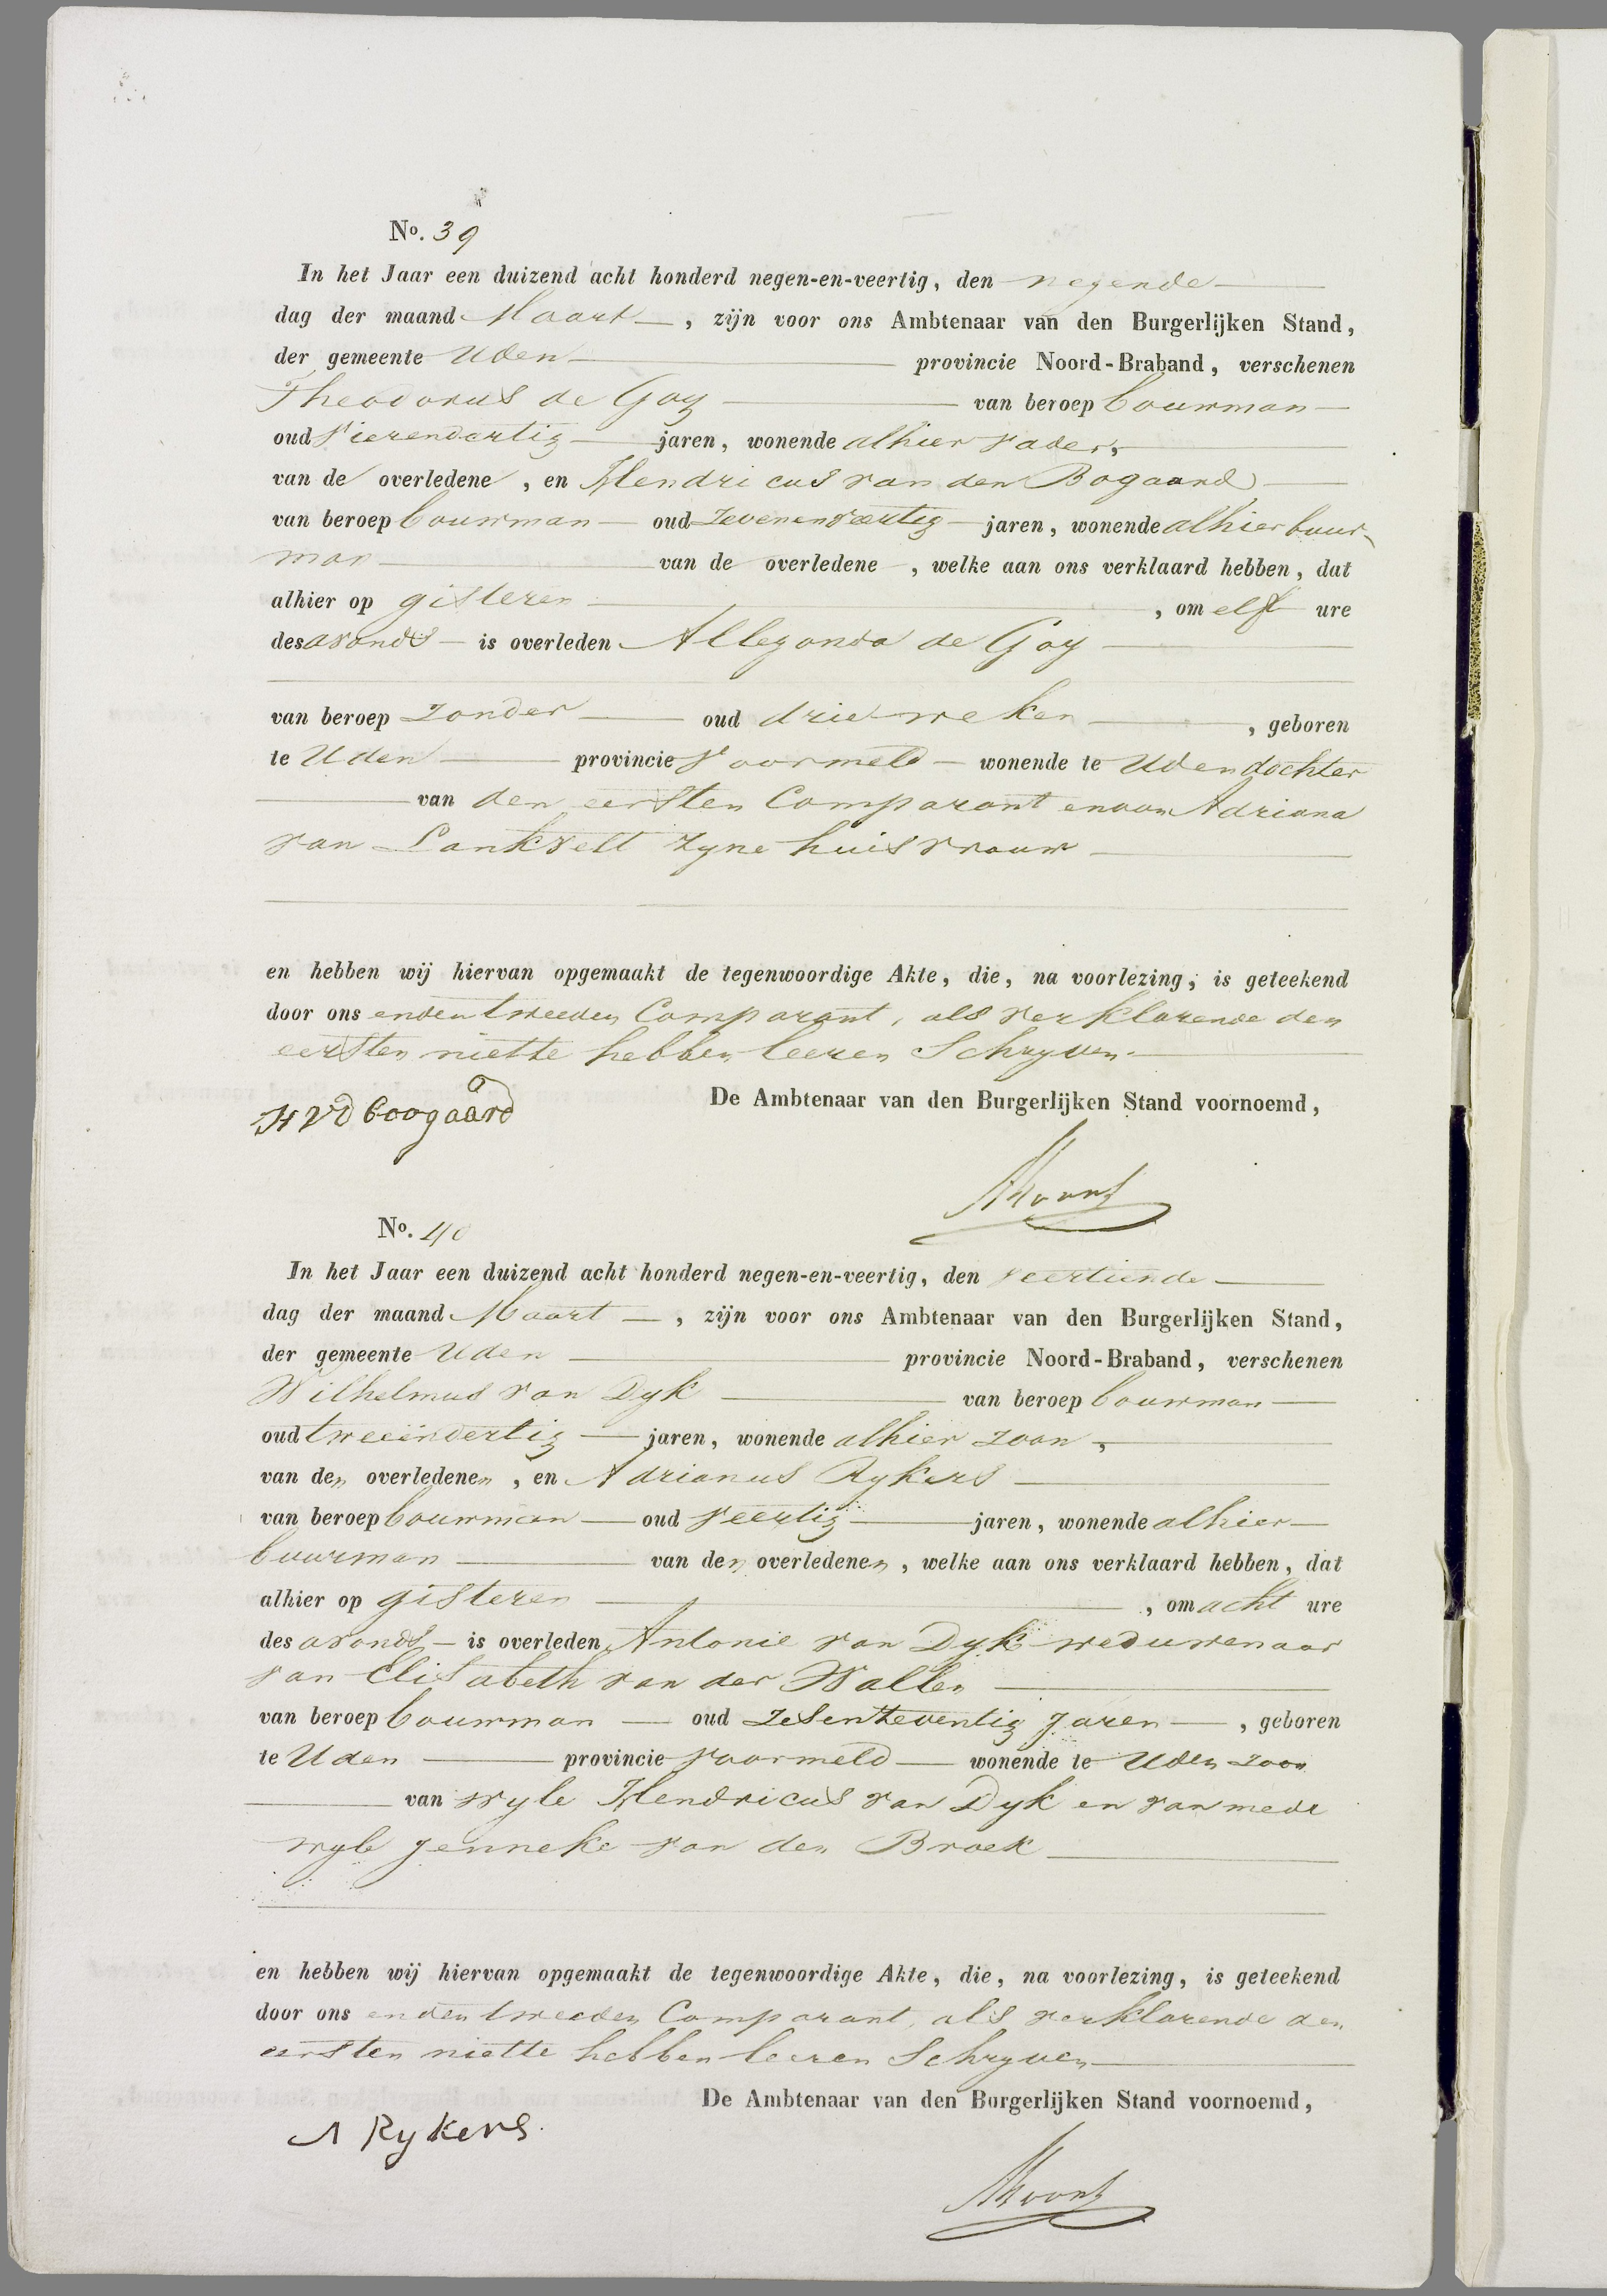 No. 39
In het Jaar een duizend acht honderd negen-en-veertig, den negende
dag der maand Maart, zijn voor ons Ambtenaar van den Burgerlijken Stand,
der gemeente Uden provincie Noord-Braband, verschenen
Theodorus de Goy van beroep bouwman
oud vierendertig jaren, wonende alhier vader,
van de overledene, en Hendricus van den Bogaard
van beroep bouwman oud zevenenveertig jaren, wonende alhier buur-
man van de overledene, welke aan ons verklaard hebben, dat
alhier op gisteren, om elf ure
des avonds is overleden Allegonda de Goy
van beroep zonder oud drie weken, geboren
te Uden provincie voormeld wonende te Uden dochter
van den eersten Comparant en van Adriana
van Lankvelt zyne huisvrouw
en hebben wij hiervan opgemaakt de tegenwoordige Akte, die, na voorlezing, is geteekend
door ons en den tweeden Comparant, als verklarende den
eersten niet te hebben leeren Schryven.
De Ambtenaar van den Burgerlijken Stand voornoemd,
H VD boogaard
No. 40
In het Jaar een duizend acht honderd negen-en-veertig, den veertiende
dag der maand Maart, zijn voor ons Ambtenaar van den Burgerlijken Stand,
der gemeente Uden provincie Noord-Braband, verschenen
Wilhelmus van Dyk van beroep bouwman
oud tweeëndertig jaren, wonende alhier zoon,
van den overledenen, en Adrianus Rykers
van beroep bouwman oud veertig jaren, wonende alhier
buurman van den overledenen, welke aan ons verklaard hebben, dat
alhier op gisteren, om acht ure
des avonds is overleden Antonie van Dyk weduwenaar
van Elisabeth van der Wallen
van beroep bouwman oud zesentzeventig jaren, geboren
te Uden provincie voormeld wonende te Uden zoon
van wyle Hendricus van Dyk en van mede
wyle Jenneke van den Broek
en hebben wij hiervan opgemaakt de tegenwoordige Akte, die, na voorlezing, is geteekend
door ons en den tweeden Comparant, als verklarende den
eersten niet te hebben leeren Schryven
De Ambtenaar van den Burgerlijken Stand voornoemd,
A Rykers.